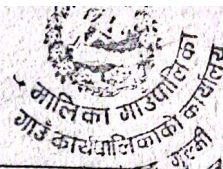 मालिका गाउँपालिका
गाउँ कार्यपालिकाको कार्यालय
गुल्मी